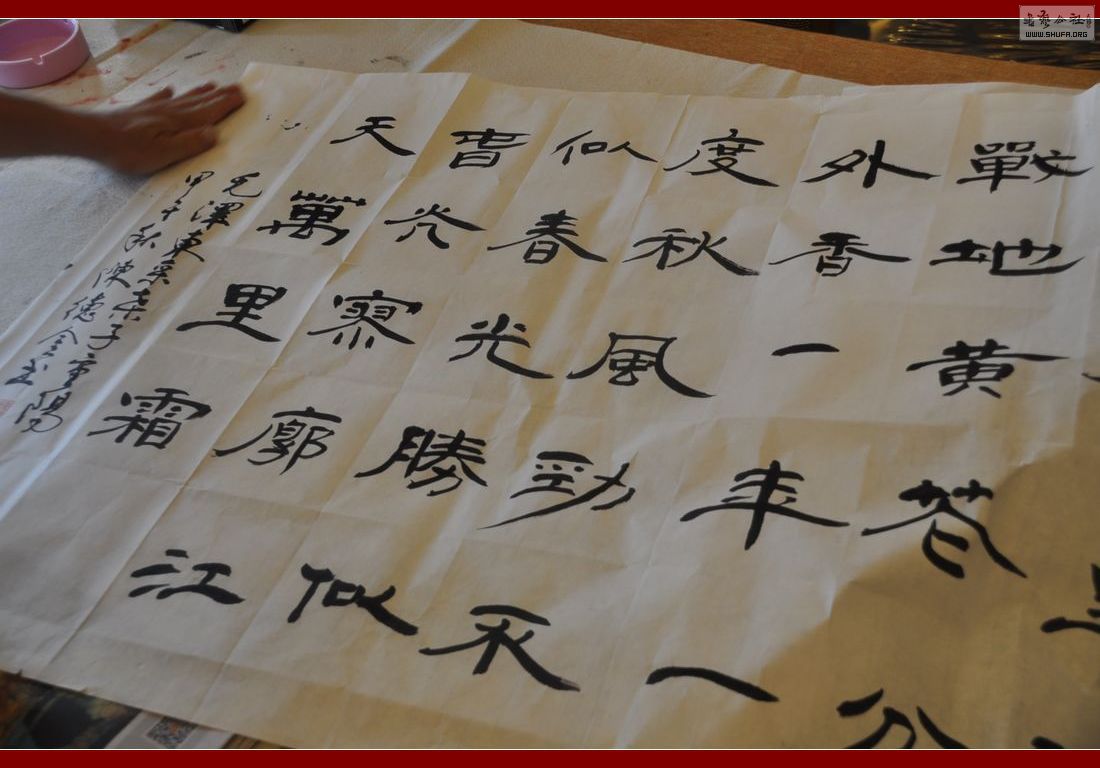 戰地黄花分
外香一年一
度秋風勁不
似春光勝似
旾光寥廓江
天萬里霜
毛澤東采桑子重陽
甲午秋陳德金书
WWW.SHUFA.ORG